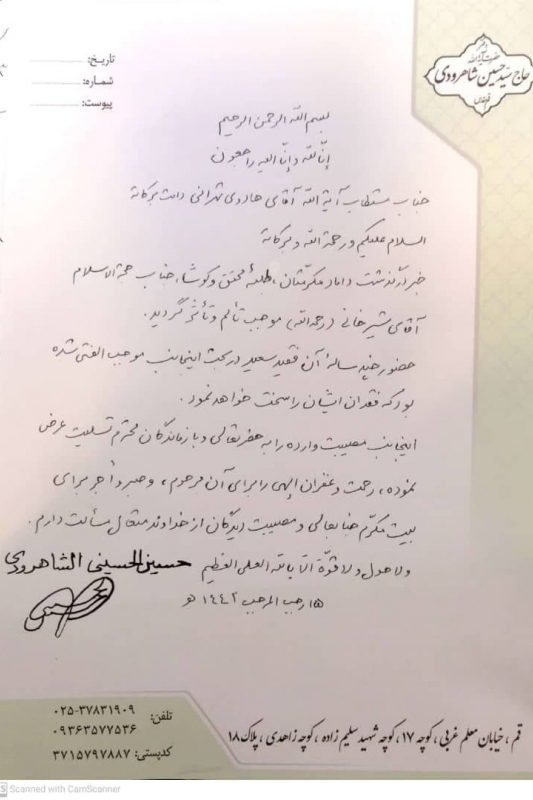 دفتر
حضرت آیة الله
حاج سید حسین شاهرودی
تاریخ:
شماره:
پیوست:
بسم الله الرحمن الرحیم
إنّا لله و إنّا الیه راجعون
جناب مستطاب آیة الله آقای هادوی تهرانی دامت برکاته
السلام علیکم و رحمة الله و برکاته
خبر درگذشت داماد مکرّمتان، طلبهٔ محقق و کوشا، جناب حجة الاسلام
آقای شیرخانی (رحمه الله) موجب تألم و تأثّر گردید.
حضور چند سالهٔ آن فقید سعید در بحث اینجانب موجب الفتی شده
بود که فقدان ایشان را سخت خواهد نمود.
اینجانب مصیبت وارده را به حضرتعالی و بازماندگان محترم تسلیت عرض
نموده، رحمت و غفران إلهی را برای آن مرحوم، و صبر و أجر برای
بیت مکرّم جنابعالی و مصیبت دیدگان از خداوند متعال مسألت دارم.
ولا حول ولا قوّة الّا بالله العلی العظیم
حسین الحسینی الشاهرودی
۱۵ رجب المرجب ۱٤٤۲ هـ
تلفن: ۰۲۵-۳۷۸۳۱۹۰۹
۰۹۳۶۳۵۷۷۵۳۶
کدپستی: ۳۷۱۵۷۹۷۸۸۷
قم، خیابان معلم غربی، کوچه ۱۷، کوچه شهید سلیم زاده، کوچه زاهدی، پلاک ۱۸
Scanned with CamScanner